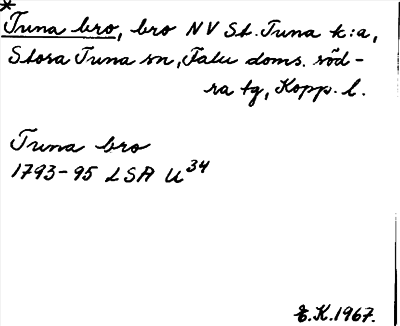 *
Tuna bro, bro NV St. Tuna k:a,
Stora Tuna sn, Falu doms. söd-
ra tg, Kopp. l.
Tuna bro
1793-95 LSA U34
E.K.1967.